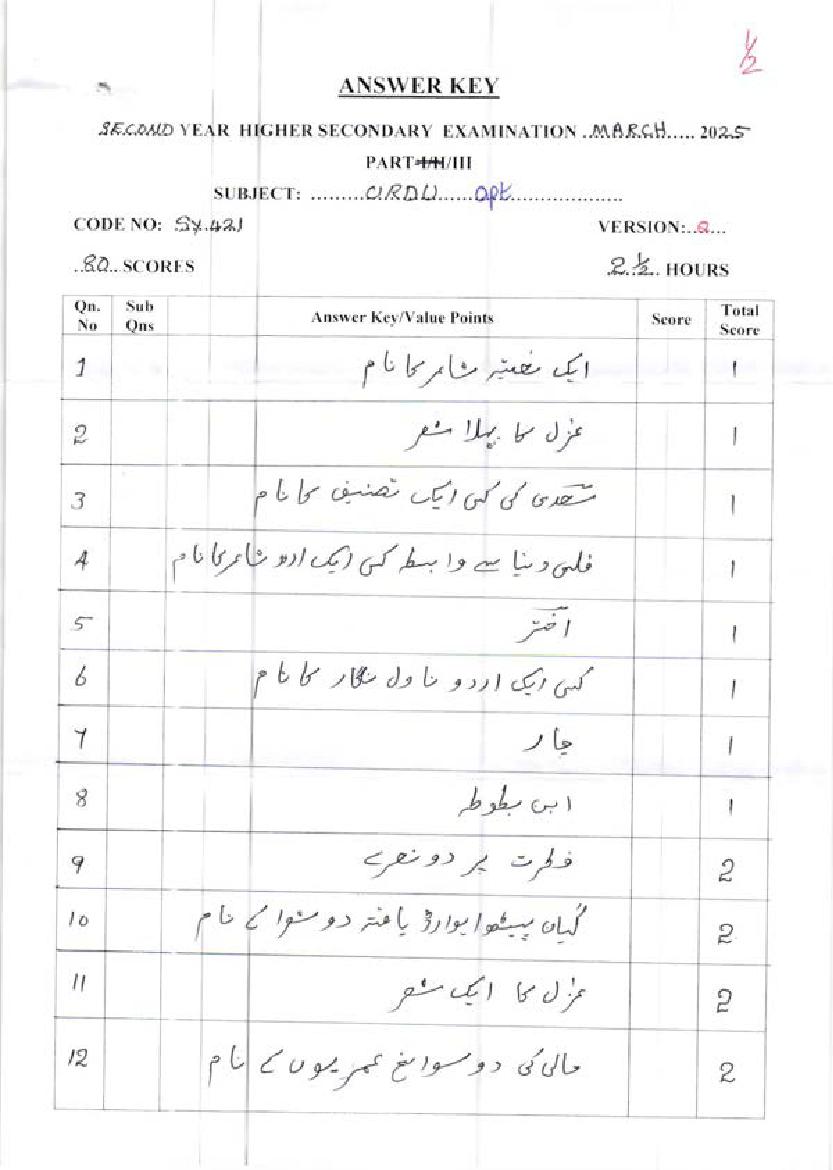 1/2
ANSWER KEY
SECOND YEAR HIGHER SECONDARY EXAMINATION ..MARCH..... 2025
PART I/II/III
SUBJECT: .........URDU......opt...................
CODE NO: SY.421 VERSION:..2...
..80...SCORES 2 1/2.. HOURS
Qn. No Sub Qns Answer Key/Value Points Score Total Score
1 ایک نعتیہ شاعر کا نام 1
2 غزل کا پہلا شعر 1
3 سعدی کی کسی ایک تصنیف کا نام 1
4 فلمی دنیا سے وابسطہ کسی ایک اردو شاعر کا نام 1
5 اختر 1
6 کسی ایک اردو ناول نگار کا نام 1
7 چار 1
8 ابن بطوطہ 1
9 فطرت پر دو نعرے 2
10 گیان پیٹھ ایوارڈ یافتہ دو شعرا کے نام 2
11 غزل کا ایک شعر 2
12 حالی کی دو سوانح عمریوں کے نام 2